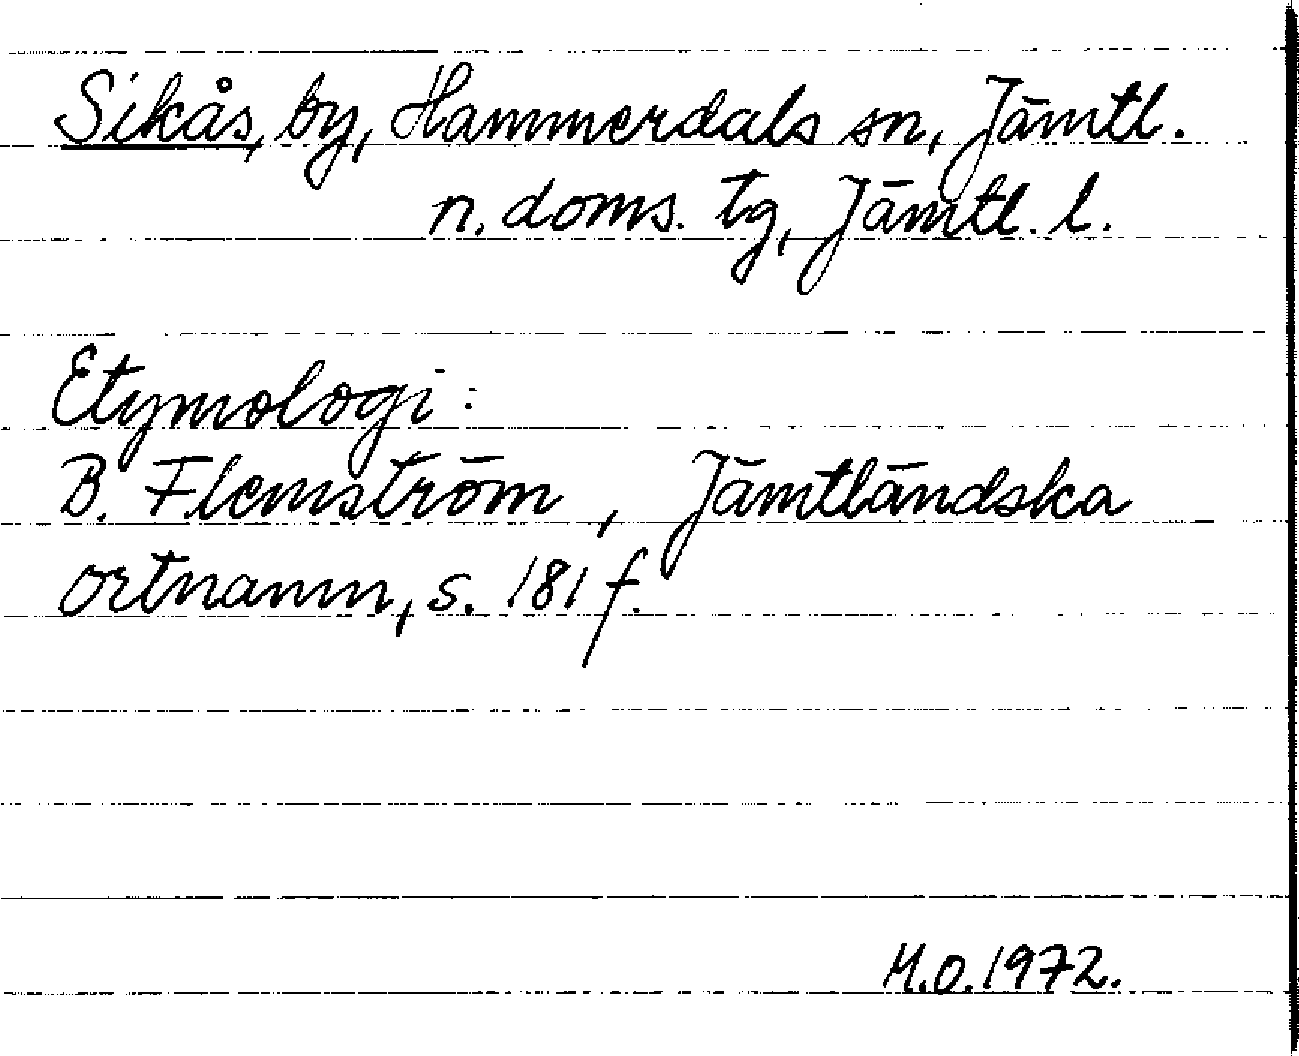 Sikås, by, Hammerdals sn, Jämtl.
n. doms. tg, Jämtl. l.
Etymologi:
B. Flemström, Jämtländska
ortnamn, s. 181 f.
M.O. 1972.